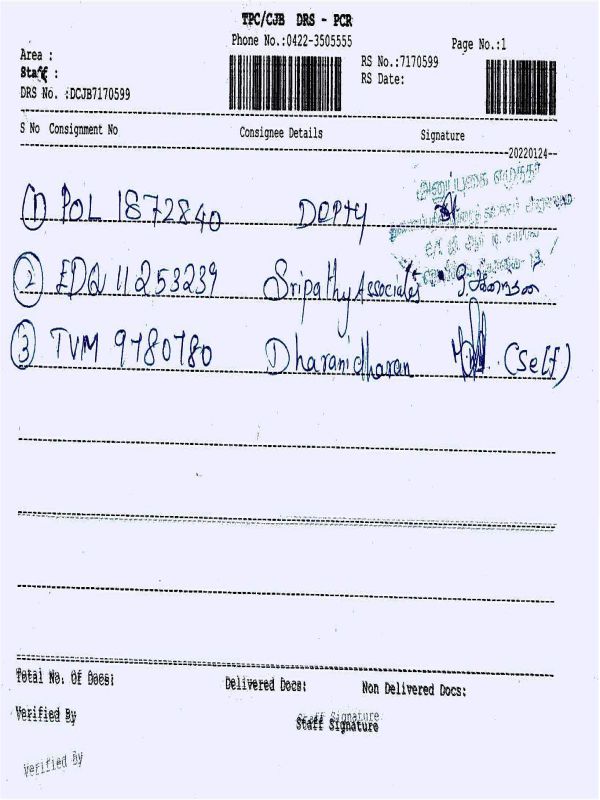 TPC/CJB DRS - PCR
Phone No.:0422-3505555
Page No.:1
Area :
Staff :
DRS No. :DCJB7170599
RS No.:7170599
RS Date:
S No Consignment No Consignee Details Signature
20220124
1 POL 1872840 DEPTY
அனுப்புகை எழுத்தர்
2 EDQ 11253239 Sripathy Associates
3 TVM 9780780 Dharanidharan (Self)
Total No. Of Docs: Delivered Docs: Non Delivered Docs:
Verified By Staff Signature
Staff Signature
Verified By